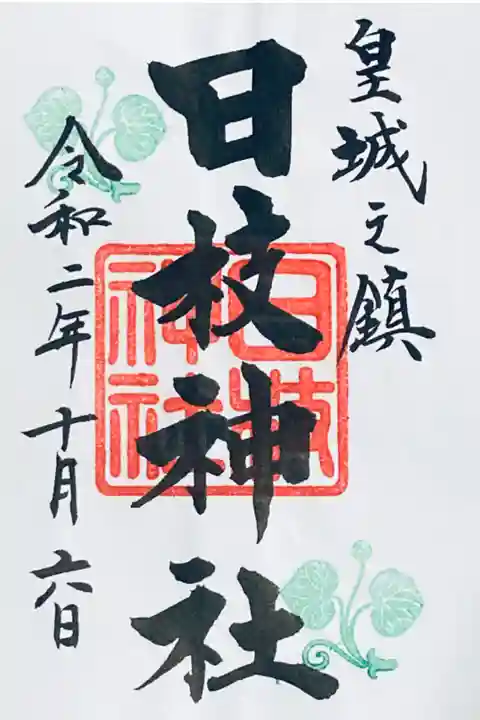 皇城之鎮
日枝神社
日枝神社
令和二年十月六日